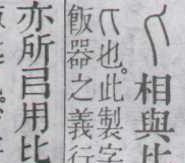 相與比
也。此製字
飯器之義行
亦所㠯用比